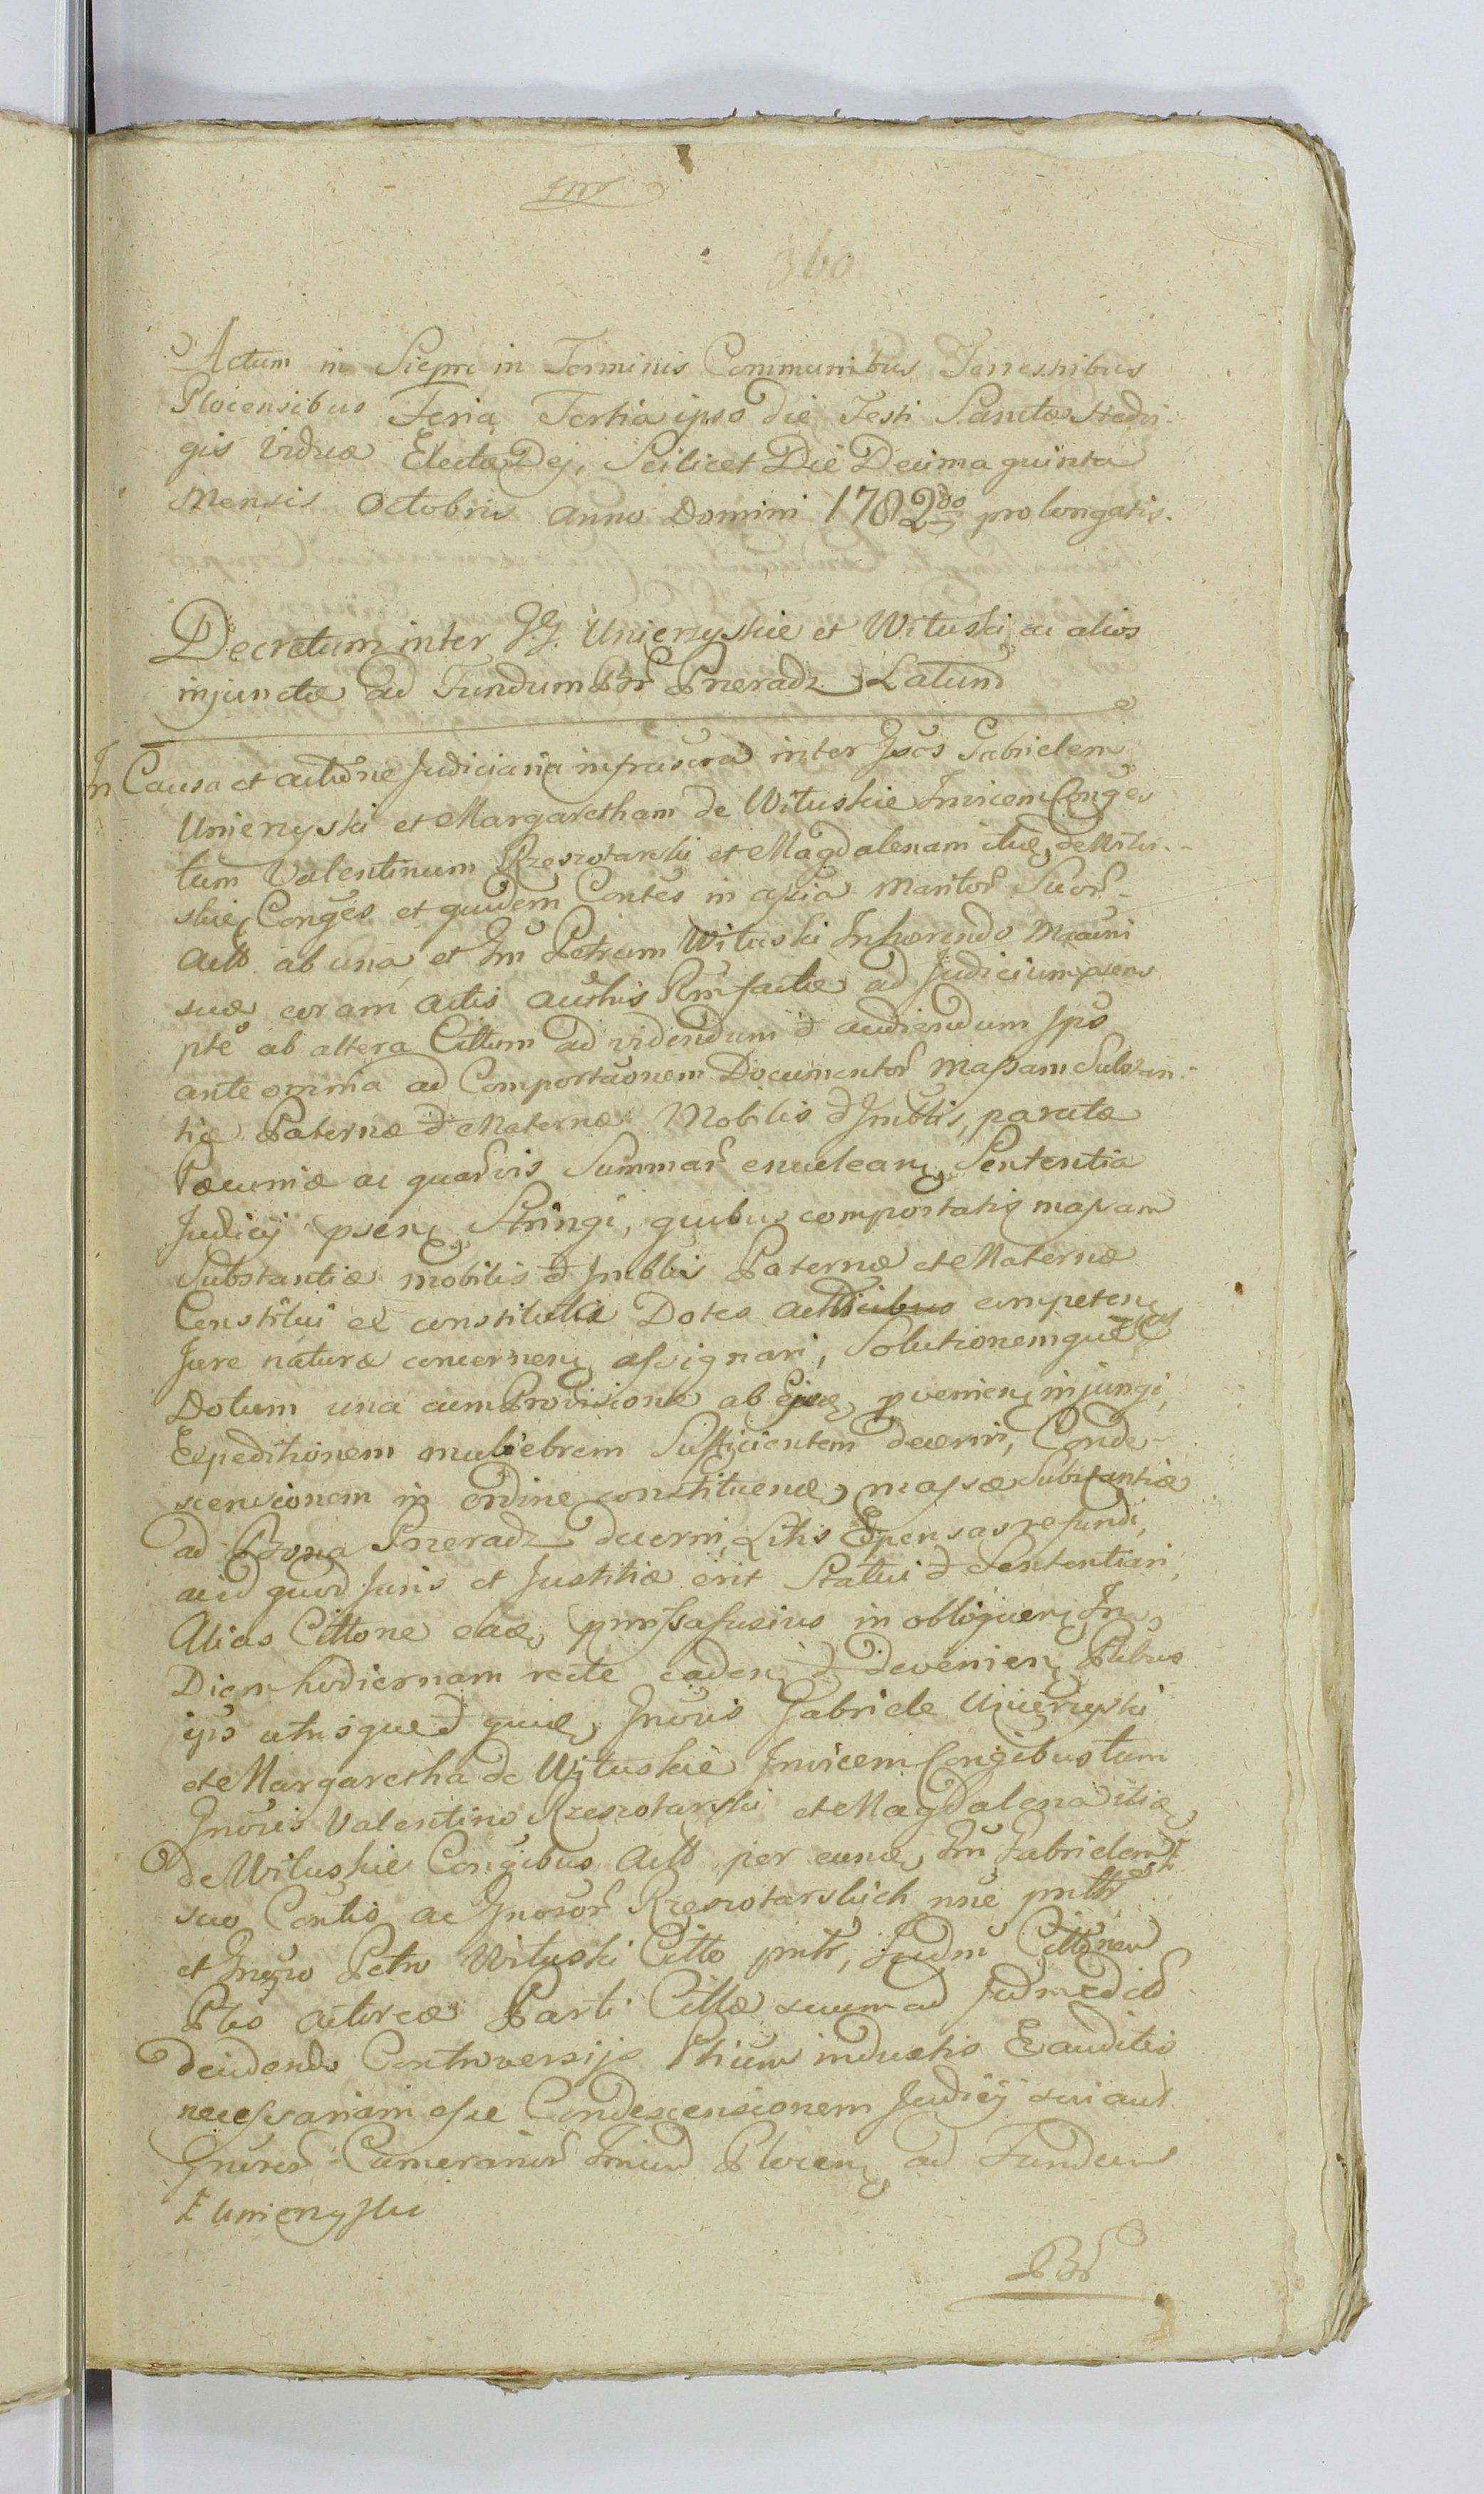 360
Actum in Siepre in Terminis Communibus Terrestribus
Plocensibus Feria Tertia ipso die Festi Sanctæ Hedvi-
gis Viduæ Electæ Dej, Scilicet Die Decima quinta
Mensis Octobris Anno Domini 1782do prolongatis.
Decretum inter GG. Unierzyskie et Wituski ac alios
injunctæ ad Fundum Bnr Pneradz Latum
In Causa et actione Judiciaria infrascra inter Gsos Gabrielem
Unierzyski et Margaretham de Wituskie Invicem Conges
tum Valentinum Rzeszotarski et Magdalenam itid de Witu-
skie Conges et quidem Contes in assia Maritor Suor
Actt ab una et Gm Petrum Wituski Inhærendo Mocuni
suæ coram Actis Authis Rmfactæ ad Judicium psens
pte ab altera Cittum ad videndum & audiendum Ipso
ante omnia ad Comportaonem Documentor massam Substan-
tiæ Paternæ & Maternæ Mobilis & Imblis, paratæ
Pæcuniæ ac quarvis Summar enuclean Sententia
Judicij psen Stringi, quibus comportatis massam
Substantiæ mobilis & Imblis Paternæ et Maternæ
Constitui ex constituta Dotes competen
Jure naturæ concernen assignari, Solutionemque
Dotum una cum Provisione ab Ejsd pvenien injungi,
Expeditionem muliebrem Sufficientem decerni, Conde-
scensionem in ordine constituend massæ Substantiæ
ad Bona Pneradz decerni, Litis Expensas refundi,
acid quod Juris et Justitiæ erit Statui & Sententiari,
Alias Cittone ead fusius in obloquen In
Diem hodiernam recte caden & devenien Ptibus
ips utrisque & quid Gnosis Gabriele Unierzyski
et Margaretha de Wituskie Invicem Congibus tum
Gnosis Valentino Rzeszotarski et Magdalena itid
de Wituskie Congibus Actt per eund Gm Gabrielem ‡
suo Contis ac Gnosor Rzeszotarskich nne pntbr
et Gnoso Petro Wituski Citto pntr, Judm Cittonem
Ptis Actoreæ Parti Cittæ suum ad
deudendo Controversijs Ptium industis Exauditis
necessariam esse Condescensionem Judicij sui aut
Gnosor Camerarior Plocen ad Fundum
‡ Unierzyski
Bnr